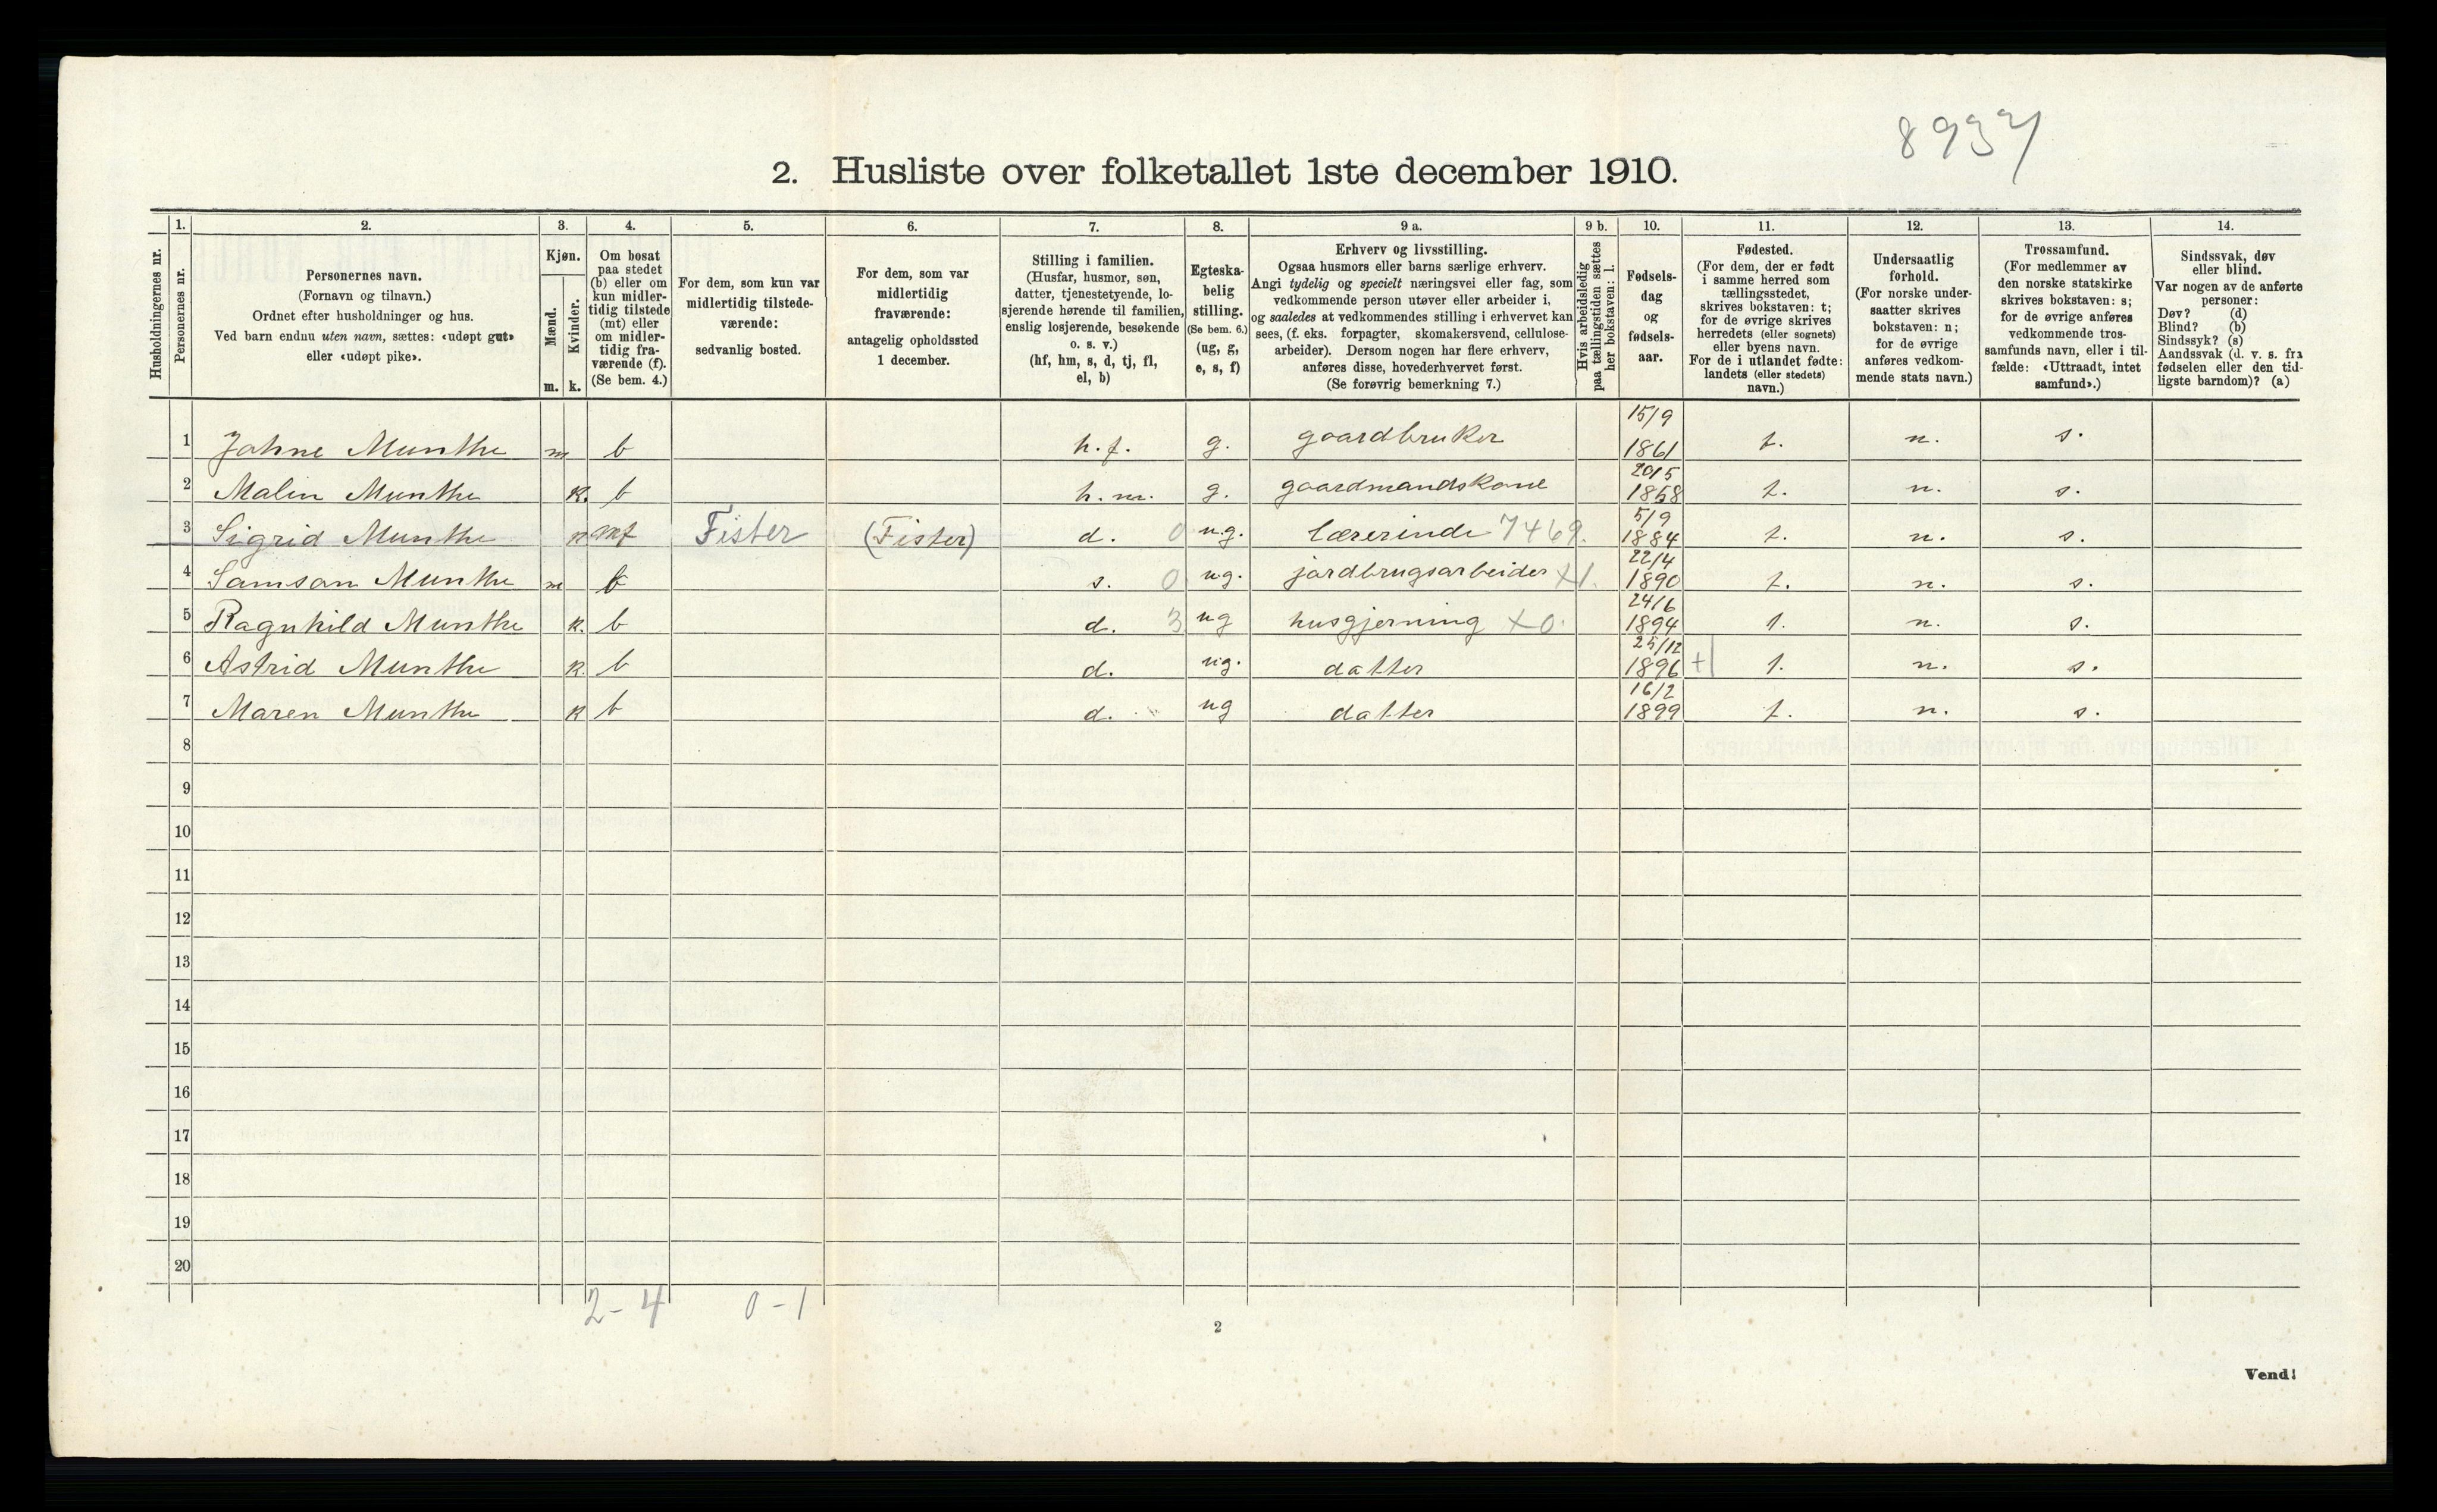 8937
2. Husliste over folketallet 1ste december 1910.
Husholdningernes nr.
1.
Personernes nr.
2.
Personernes navn.
(Fornavn og tilnavn.)
Ordnet efter husholdninger og hus.
Ved barn endnu uten navn, sættes: «udøpt gut»
eller «udøpt pike».
3.
Kjøn.
Mænd.
Kvinder.
m. k.
4.
Om bosat
paa stedet
(b) eller om
kun midler-
tidig tilstede
(mt) eller
om midler-
tidig fra-
værende (f).
(Se bem. 4.)
5.
For dem, som kun var
midlertidig tilstede-
værende:
sedvanlig bosted.
6.
For dem, som var
midlertidig
fraværende:
antagelig opholdssted
1 december.
7.
Stilling i familien.
(Husfar, husmor, søn,
datter, tjenestetyende, lo-
sjerende hørende til familien,
enslig losjerende, besøkende
o. s. v.)
(hf, hm, s, d, tj, fl,
el, b)
8.
Egteska-
belig
stilling.
(Se bem. 6.)
(ug, g,
e, s, f)
9 a.
Erhverv og livsstilling.
Ogsaa husmors eller barns særlige erhverv.
Angi tydelig og specielt næringsvei eller fag, som
vedkommende person utøver eller arbeider i,
og saaledes at vedkommendes stilling i erhvervet kan
sees, (f. eks. forpagter, skomakersvend, cellulose-
arbeider). Dersom nogen har flere erhverv,
anføres disse, hovederhvervet først.
(Se forøvrig bemerkning 7.)
9 b.
Hvis arbeidsledig
paa tællingstiden sættes
her bokstaven: l.
10.
Fødsels-
dag
og
fødsels-
aar.
11.
Fødested.
(For dem, der er født
i samme herred som
tællingsstedet,
skrives bokstaven: t;
for de øvrige skrives
herredets (eller sognets)
eller byens navn.
For de i utlandet fødte:
landets (eller stedets)
navn.)
12.
Undersaatlig
forhold.
(For norske under-
saatter skrives
bokstaven: n;
for de øvrige
anføres vedkom-
mende stats navn.)
13.
Trossamfund.
(For medlemmer av
den norske statskirke
skrives bokstaven: s;
for de øvrige anføres
vedkommende tros-
samfunds navn, eller i til-
fælde: «Uttraadt, intet
samfund».)
14.
Sindssvak, døv
eller blind.
Var nogen av de anførte
personer:
Døv? (d)
Blind? (b)
Sindssyk? (s)
Aandssvak (d. v. s. fra
fødselen eller den tid-
ligste barndom)? (a)
1 Johne Munthe m b h. f. g. gaardbruker 15/9 1861 t. n. s.
2 Malin Munthe k. b h. m. g. gaardmandskone 20/5 1858 t. n. s.
3 Sigrid Munthe k mt Fister (Fister) d. 0 ug. lærerinde 7469. 5/9 1884 t. n. s.
4 Samson Munthe m b s. 0 ug. jordbrugsarbeider X1. 22/4 1890 t. n. s.
5 Ragnhild Munthe k. b d. 3 ug husgjerning X0. 24/6 1894 t. n. s.
6 Astrid Munthe k. b d. ug. datter 25/12 1896 + t. n. s.
7 Maren Munthe k b d. ug datter 16/2 1899 t. n. s.
8
9
10
11
12
13
14
15
16
17
18
19
20
2-4 0-1
2
Vend!